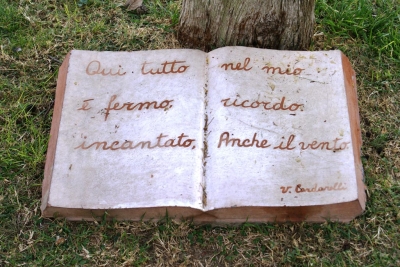 Qui tutto
è fermo,
incantato,
nel mio
ricordo.
Anche il vento.
V. Cardarelli